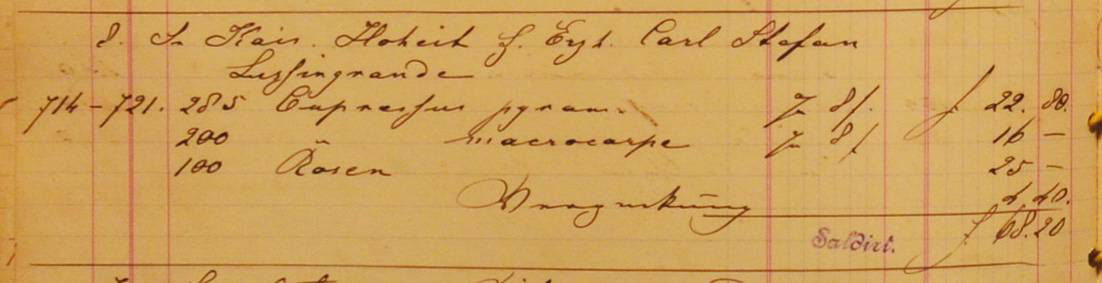 8. Sr Kais. Hoheit H. Erzh. Carl Stefan
Lussingrande
714-721. 285 Cupressus pyram. p 8f. f 22. 80.
200 " macrocarpa p 8f 16 —
100 Rosen 25 —
Verpackung 4,40.
Saldirt. f 68.20